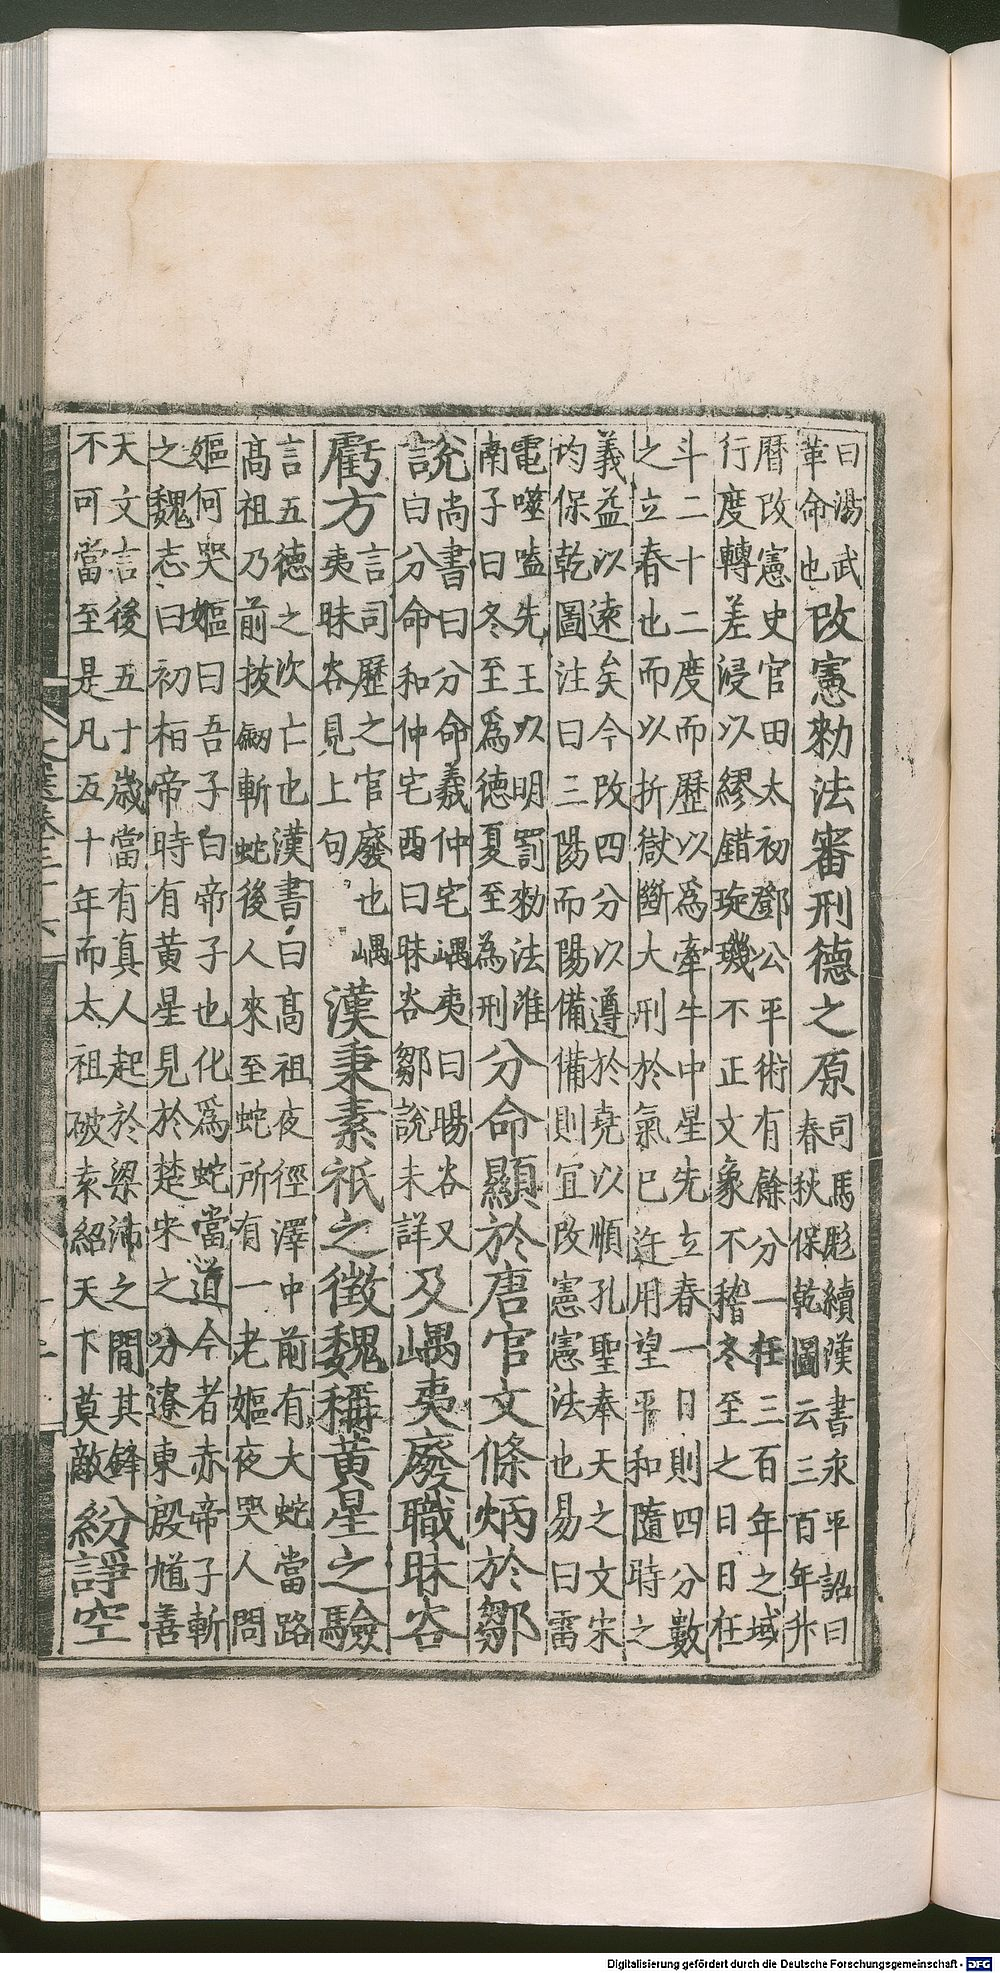 曰湯武
革命也改憲勑法審刑德之原司馬彪續漢書永平詔曰
春秋保乾圖云三百年升
曆改憲史官田太初鄧公平術有餘分一在三百年之域
行度轉差浸以繆錯琁璣不正文象不稽冬至之日日在
斗二十二度而歷以為牽牛中星先立春一日則四分數
之立春也而以折獄斷大刑於氣已迕用望平和隨時之
義益以遠矣今改四分以遵於堯以順孔聖奉天之文宋
均保乾圖注曰三陽而陽備備則宜改憲憲法也易曰雷
電噬嗑先王以明罰勑法淮
南子曰冬至爲德夏至為刑分命顯於唐官文條炳於鄒
說尚書曰分命羲仲宅嵎夷曰暘谷又
詋曰分命和仲宅西曰昧谷鄒說未詳及嵎夷廢職昧谷
虧方言司歷之官廢也嵎
夷昧谷見上句漢秉素祇之徵魏稱黃星之驗
言五德之次亡也漢書曰高祖夜徑澤中前有大蛇當路
高祖乃前拔劒斬蛇後人來至蛇所有一老嫗夜哭人問
嫗何哭嫗曰吾子白帝子也化爲蛇當道今者赤帝子斬
之魏志曰初桓帝時有黃星見於楚宋之分遼東殷馗善
天文言後五十歲當有真人起於梁沛之間其鋒
不可當至是凡五十年而太祖破袁紹天下莫敵紛諍空
文選卷三十六
Digitalisierung gefördert durch die Deutsche Forschungsgemeinschaft - DFG